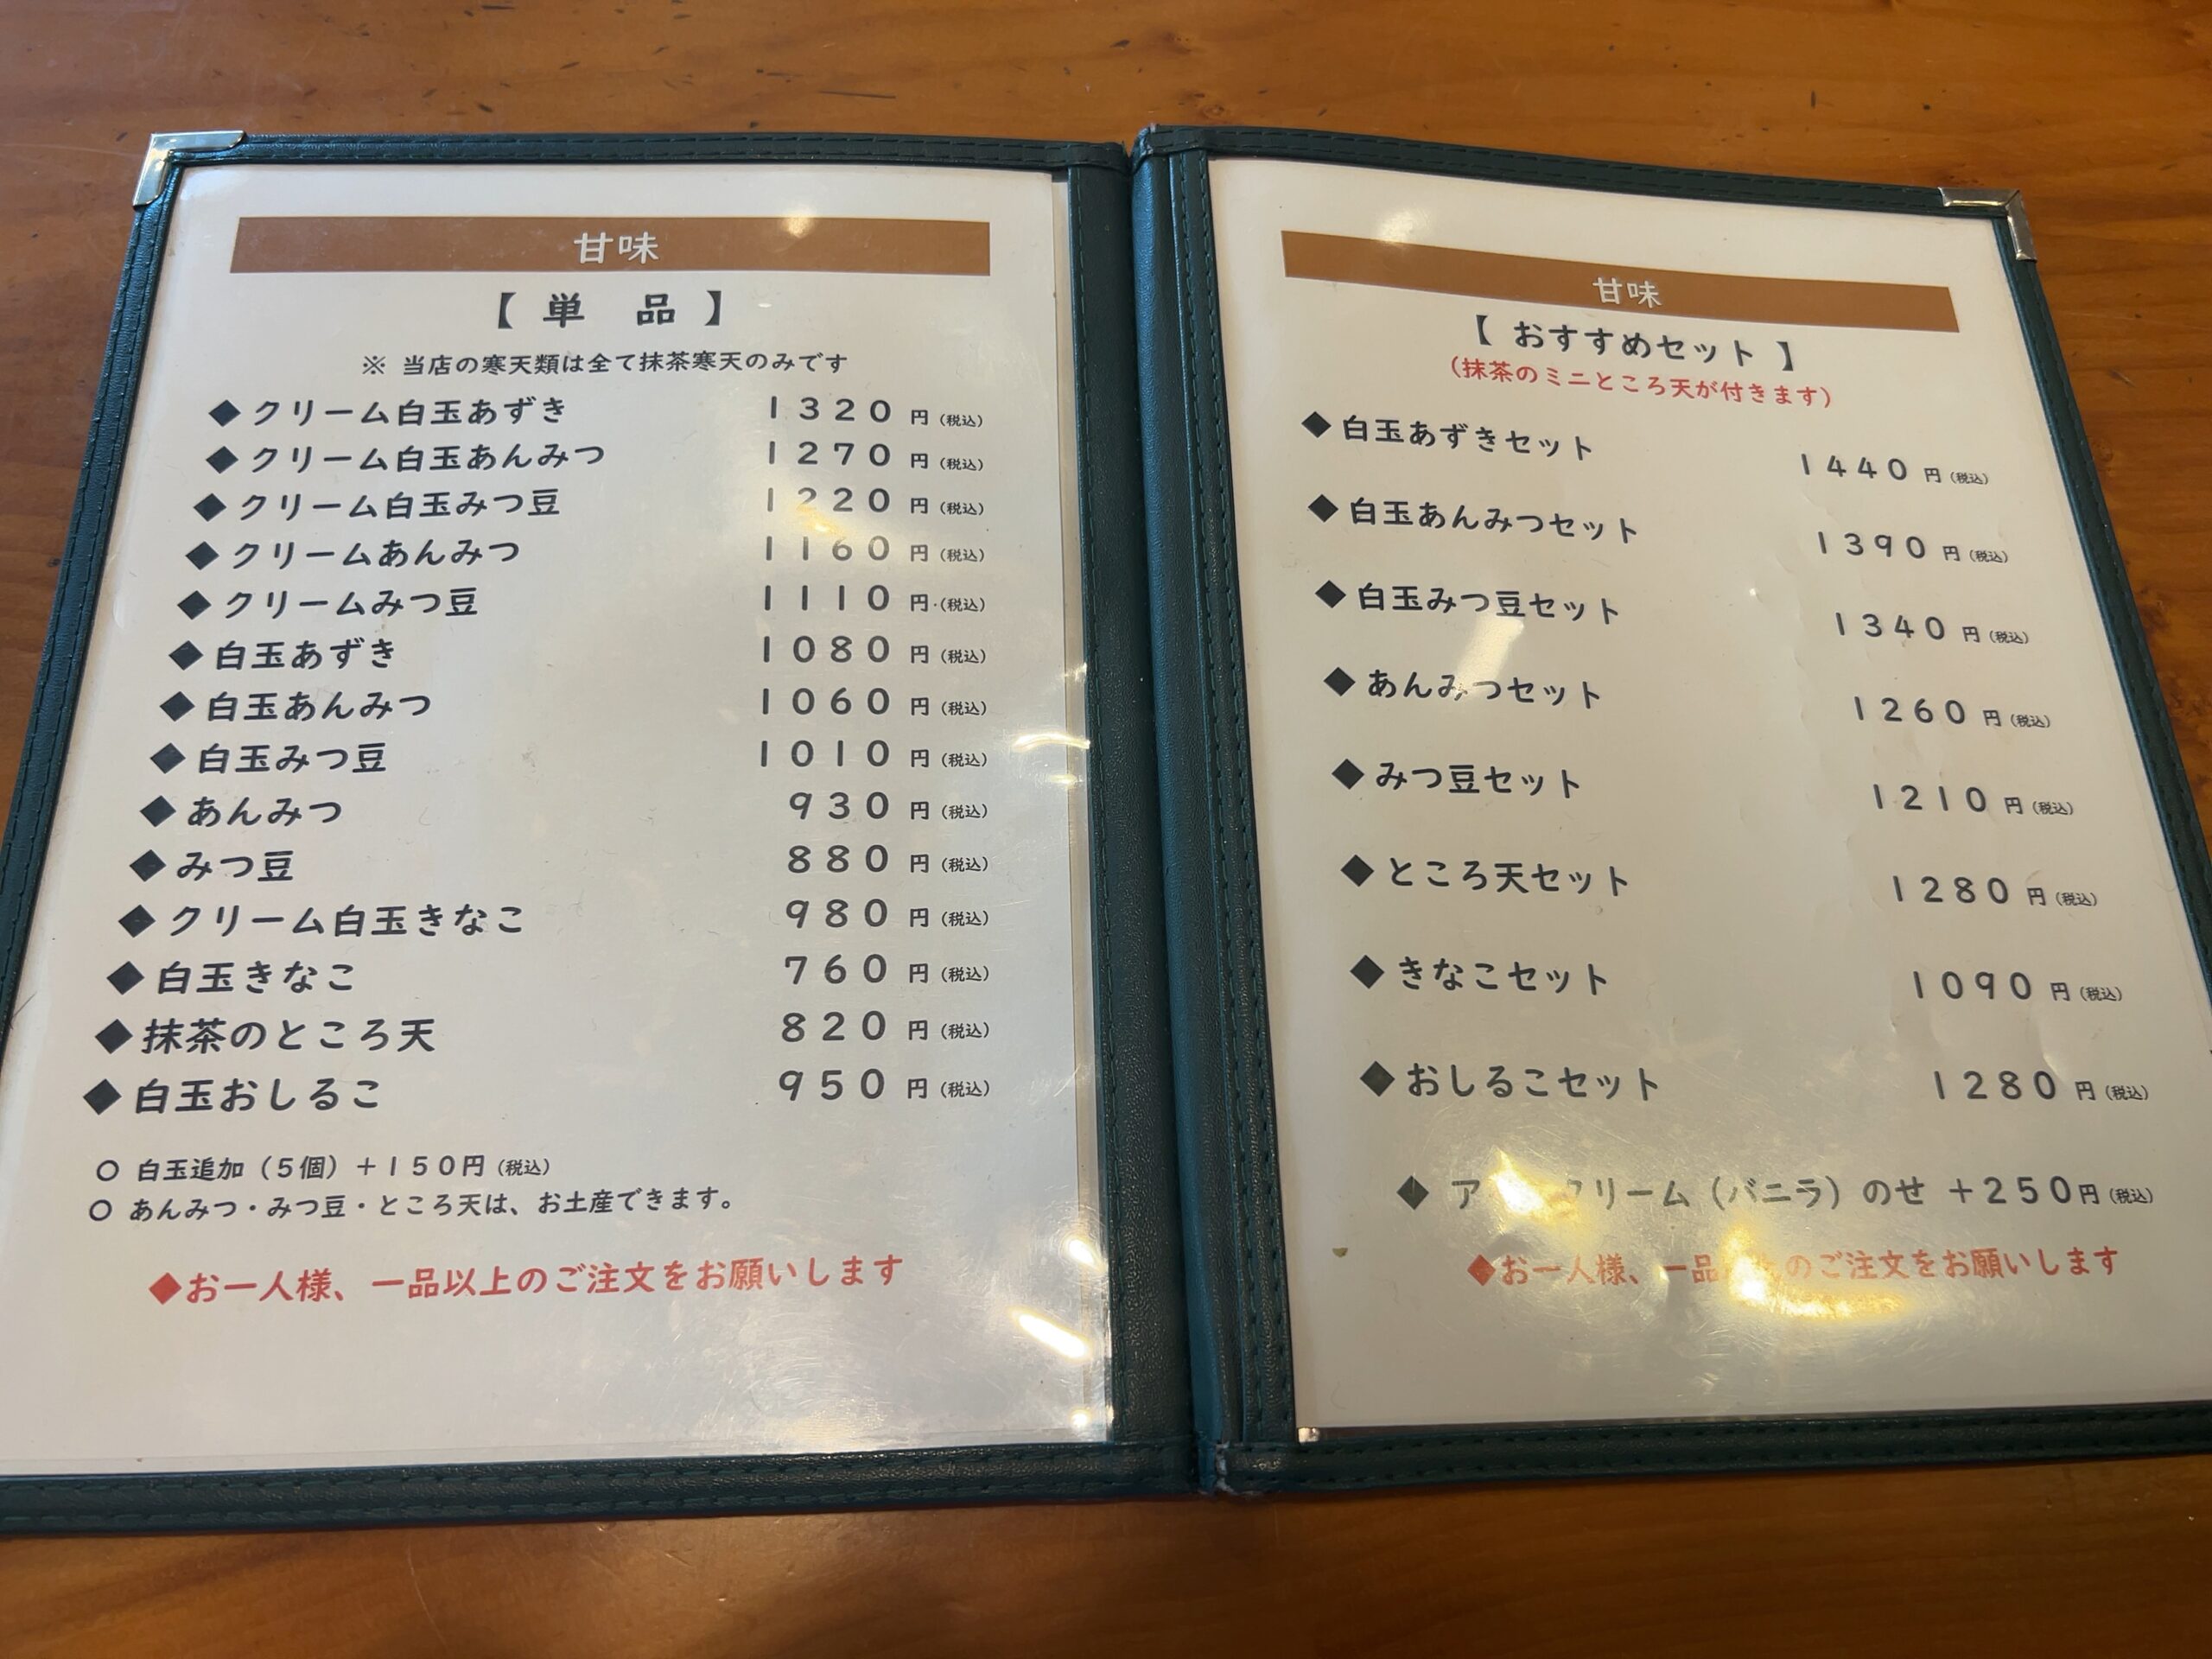 甘味
【 単 品 】
※ 当店の寒天類は全て抹茶寒天のみです
◆クリーム白玉あずき 1320 円(税込)
◆クリーム白玉あんみつ 1270 円(税込)
◆クリーム白玉みつ豆 1220 円(税込)
◆クリームあんみつ 1160 円(税込)
◆クリームみつ豆 1110 円(税込)
◆白玉あずき 1080 円(税込)
◆白玉あんみつ 1060 円(税込)
◆白玉みつ豆 1010 円(税込)
◆あんみつ 930 円(税込)
◆みつ豆 880 円(税込)
◆クリーム白玉きなこ 980 円(税込)
◆白玉きなこ 760 円(税込)
◆抹茶のところ天 820 円(税込)
◆白玉おしるこ 950 円(税込)
○ 白玉追加(5個)+150円(税込)
○ あんみつ・みつ豆・ところ天は、お土産できます。
◆お一人様、一品以上のご注文をお願いします
甘味
【 おすすめセット 】
(抹茶のミニところ天が付きます)
◆白玉あずきセット 1440 円(税込)
◆白玉あんみつセット 1390 円(税込)
◆白玉みつ豆セット 1340 円(税込)
◆あんみつセット 1260 円(税込)
◆みつ豆セット 1210 円(税込)
◆ところ天セット 1280 円(税込)
◆きなこセット 1090 円(税込)
◆おしるこセット 1280 円(税込)
◆ (バニラ)のせ +250円(税込)
◆お一人様、一品 のご注文をお願いします